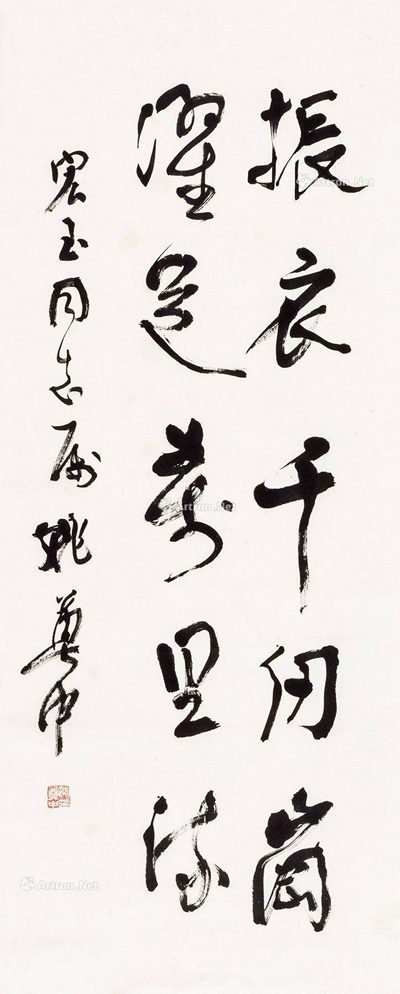 振衣千仞崗
濯足萬里流
宏玉同志属 姚奠中
Artron.Net
Artron.Net
Artron.Net